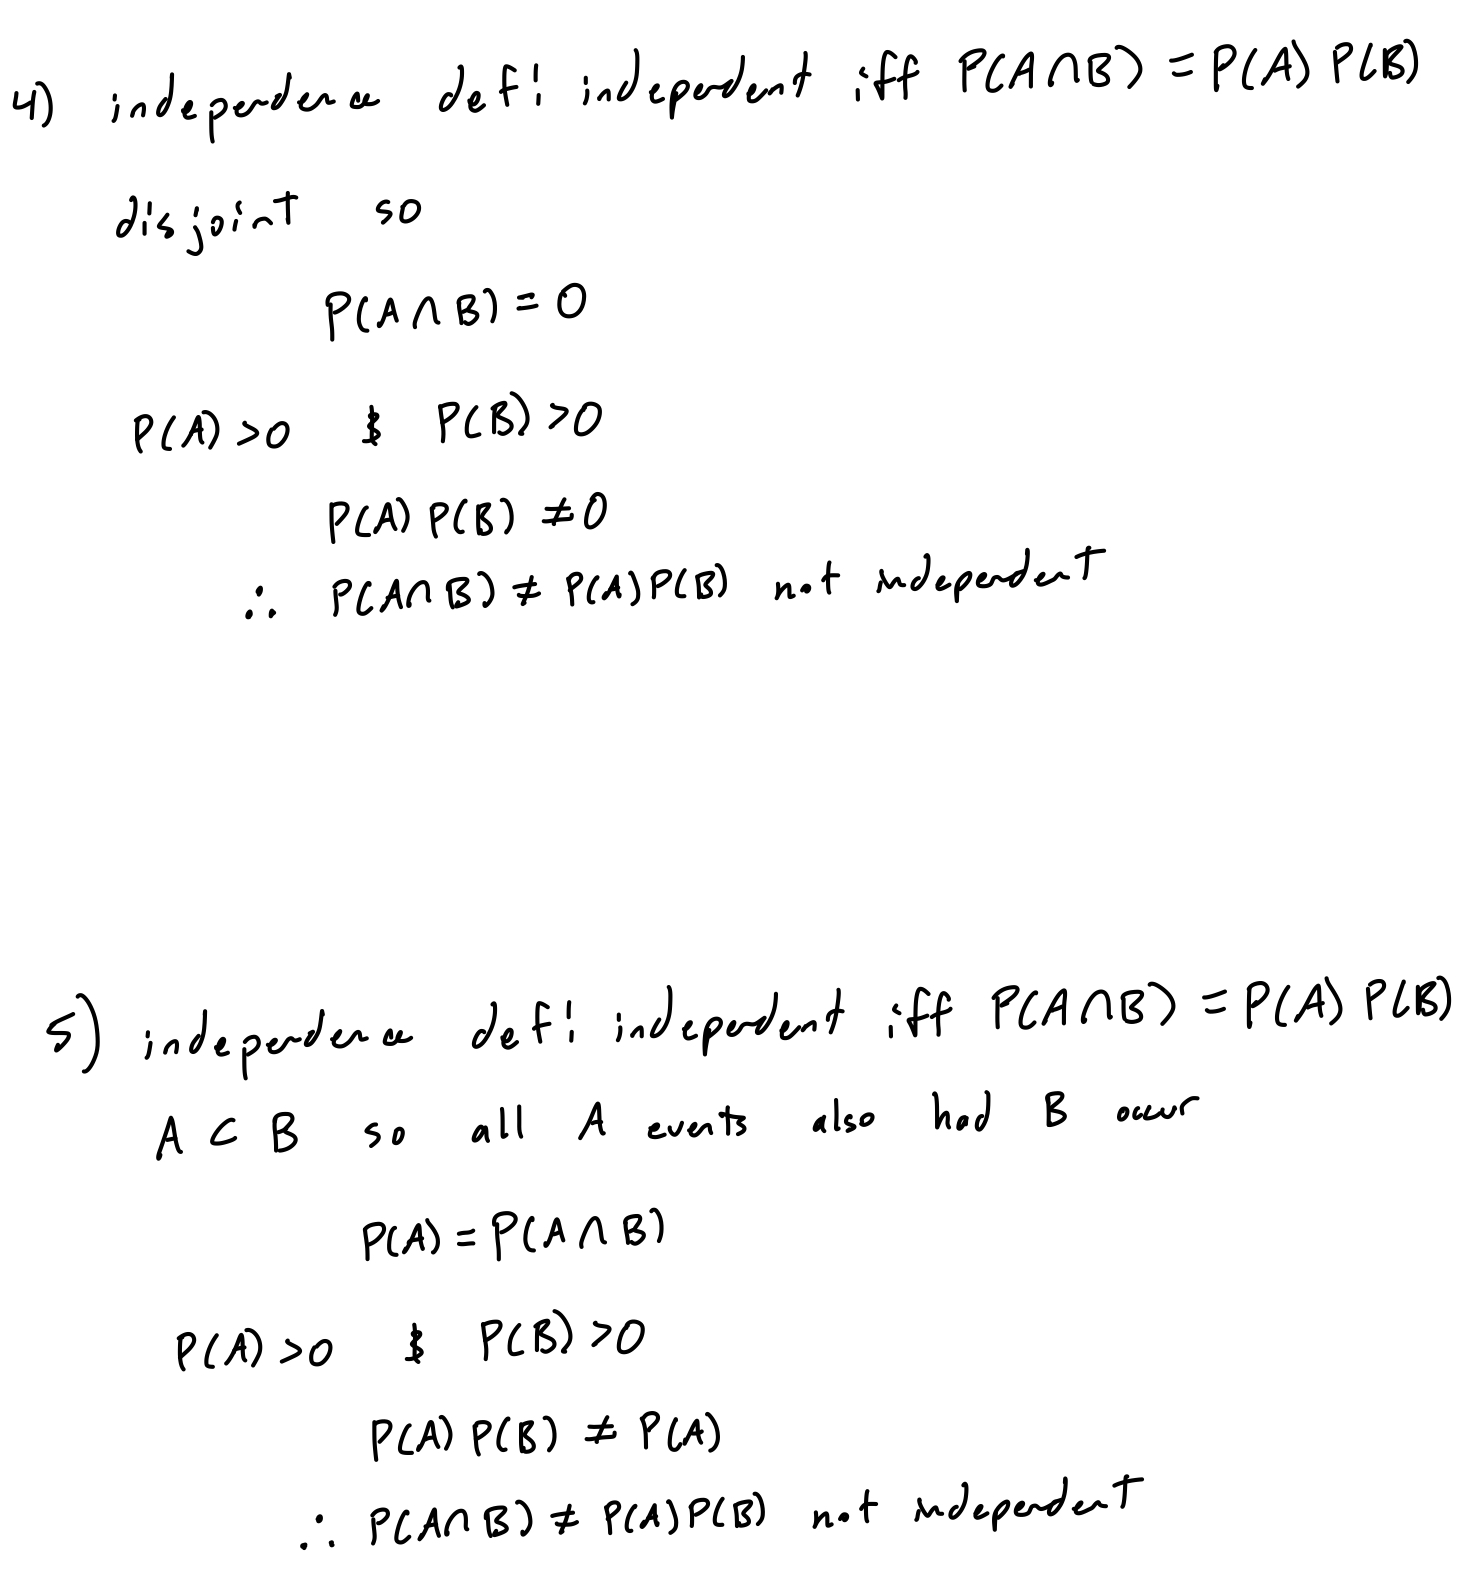 4) independence def: independent iff P(A∩B) = P(A) P(B)
disjoint so
P(A∩B) = 0
P(A) >0 & P(B) >0
P(A) P(B) ≠ 0
∴ P(A∩B) ≠ P(A)P(B) not independent
5) independence def: independent iff P(A∩B) = P(A) P(B)
A ⊂ B so all A events also had B occur
P(A) = P(A∩B)
P(A) >0 & P(B) >0
P(A) P(B) ≠ P(A)
∴ P(A∩B) ≠ P(A)P(B) not independent